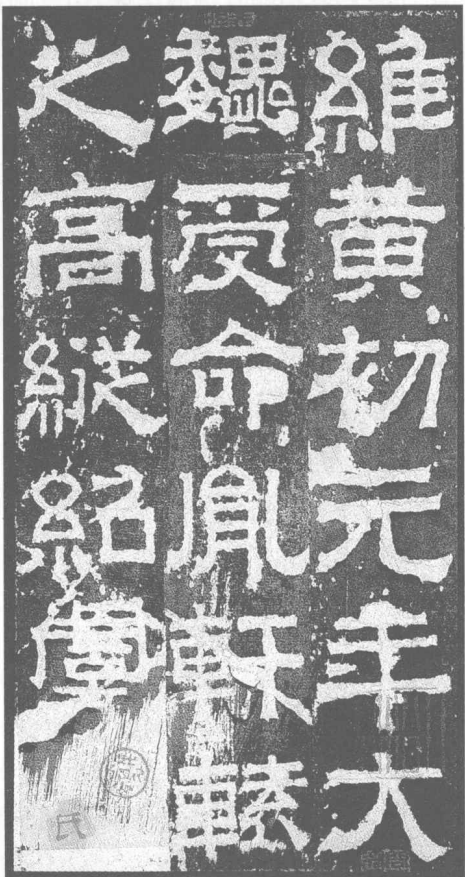 維黄初元年大
魏受命胤軒轅
之高縱紹虞氏